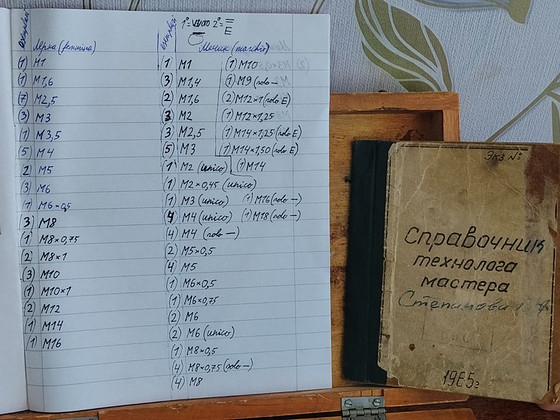 Лёрка (femmina)
(1) M1
(1) M1,6
(7) M2,5
(3) M3
(1) M3,5
(5) M4
2 M5
(3) M6
(1) M6×0,5
3 M8
(1) M8×0,75
(2) M8×1
(3) M10
(1) M10×1
(2) M12
(1) M14
(1) M16
Мечик (maschio)
1 M1
3 M1,4
2 M1,6
2 M2
3 M2,5
5 M3
1 M2 (unico)
(1) M2×0,45 (unico)
(1) M3 (unico)
4 M4 (unico)
4 M4 (solo —)
(2) M5×0,5
(4) M5
(1) M6×0,5
(1) M6×0,75
(2) M6
(2) M6 (unico)
(1) M8×0,5
(4) M8×0,75 (solo —)
(4) M8
(1) M10
(1) M9 (solo —
(2) M12×1 (solo E)
(1) M12×1,25
(1) M14×1,25 (solo E)
(1) M14×1,50 (solo E)
(1) M14
(1) M16 (solo —)
(1) M18 (solo —)
Экз №
Справочник
технолога
мастера
1985г